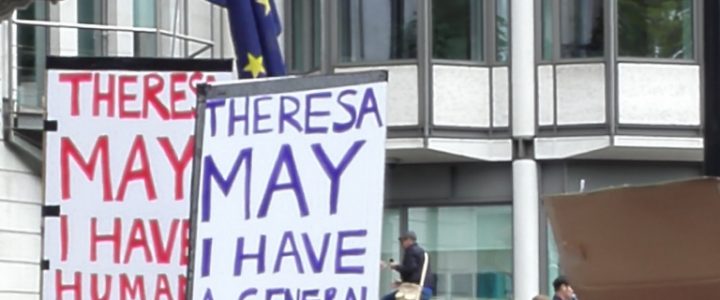 THERESA
MAY
I HAVE
HUMAN
THERESA
MAY
I HAVE
A GENERAL